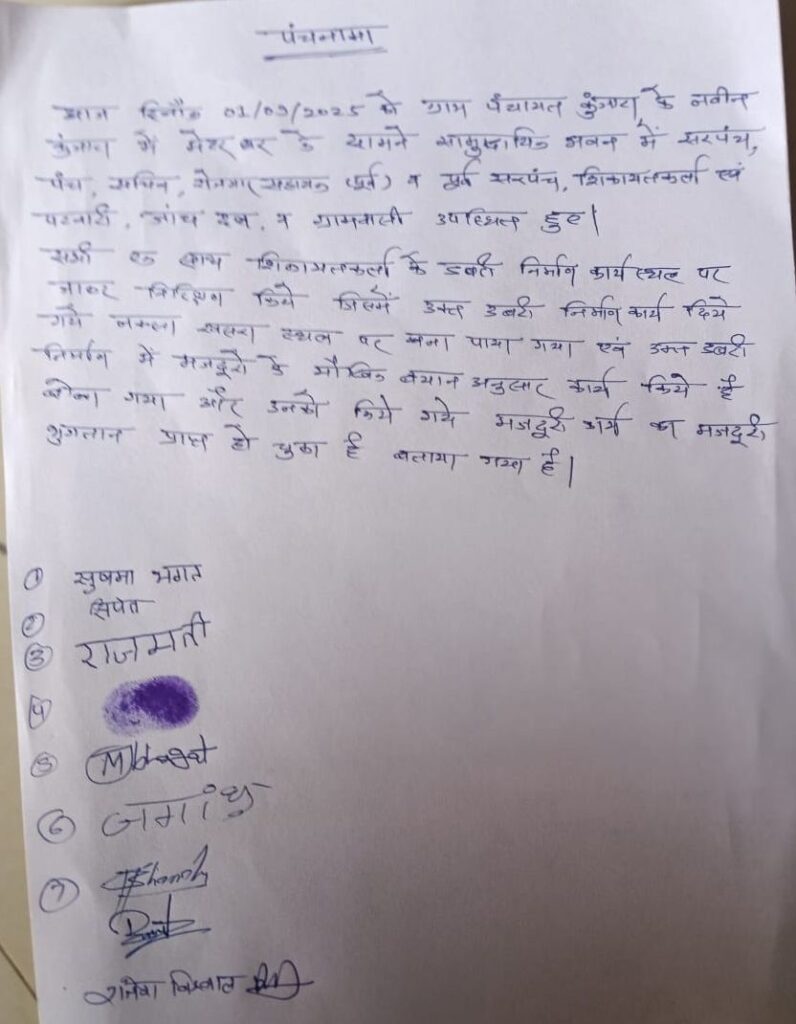 पंचनामा
आज दिनाँक 01/09/2025 को ग्राम पंचायत के नवीन
में के सामने सामुदायिक भवन में सरपंच,
पंच, सचिव, रोजगार सहायक (पूर्व) व पूर्व सरपंच, शिकायतकर्ता एवं
पटवारी, जांच दल, व ग्रामवासी उपस्थित हुए।
सभी एक साथ शिकायतकर्ता के डबरी निर्माण कार्य स्थल पर
जाकर निरिक्षण किये जिसमें उक्त डबरी निर्माण कार्य दिये
गये नक्शा खसरा स्थल पर बना पाया गया एवं उक्त डबरी
निर्माण में मजदूरों के मौखिक बयान अनुसार कार्य किये है
बोला गया और उनको किये गये मजदूरी कार्य का मजदूरी
भुगतान प्राप्त हो चुका है बताया गया है।
① सुषमा भगत
②
③ राजमती
④
⑤
⑥
⑦